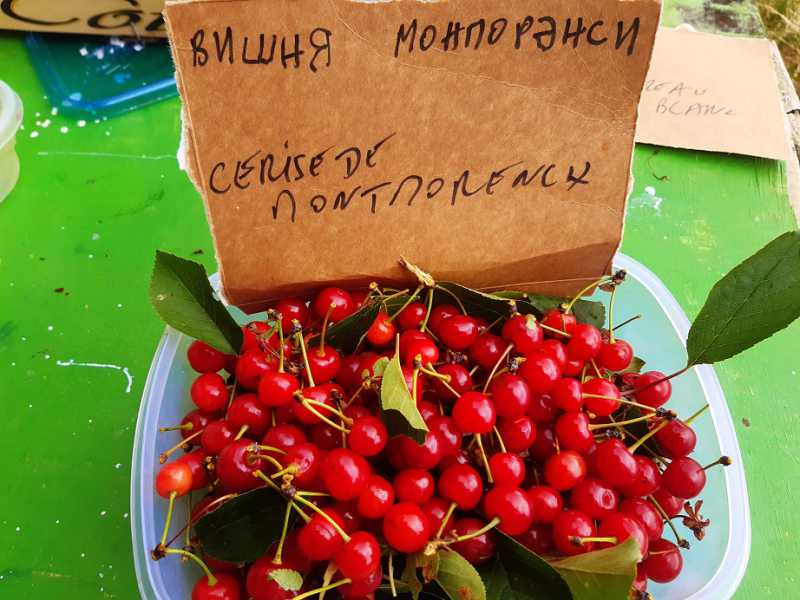 ВИШНЯ МОНПОРЭНСИ
CERISE DE
MONTMORENCY
BLANC